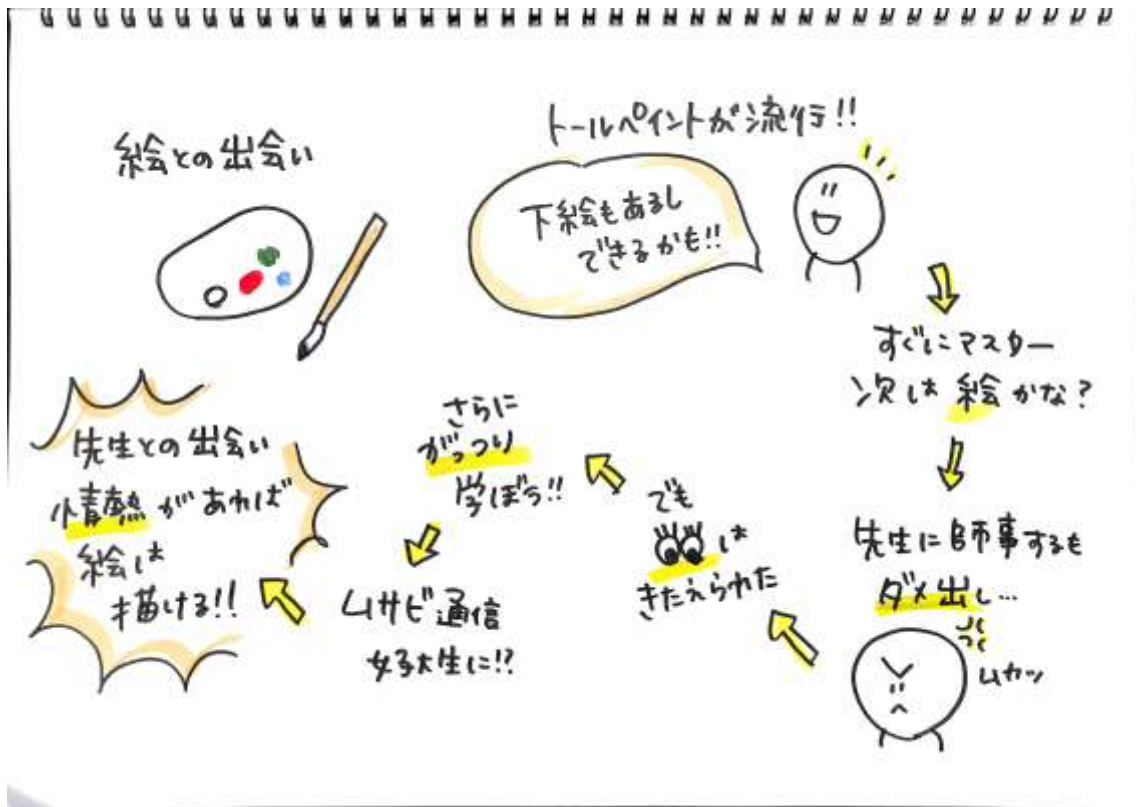 絵との出会い
トールペイントが流行!!
下絵もあるし
できるかも!!
すぐにマスター
次は絵かな?
先生に師事するも
ダメ出し…
ムカッ
でも
👀は
きたえられた
さらに
がっつり
学ぼう!!
ムサビ通信
女子大生に!?
先生との出会い
情熱があれば
絵は
描ける!!